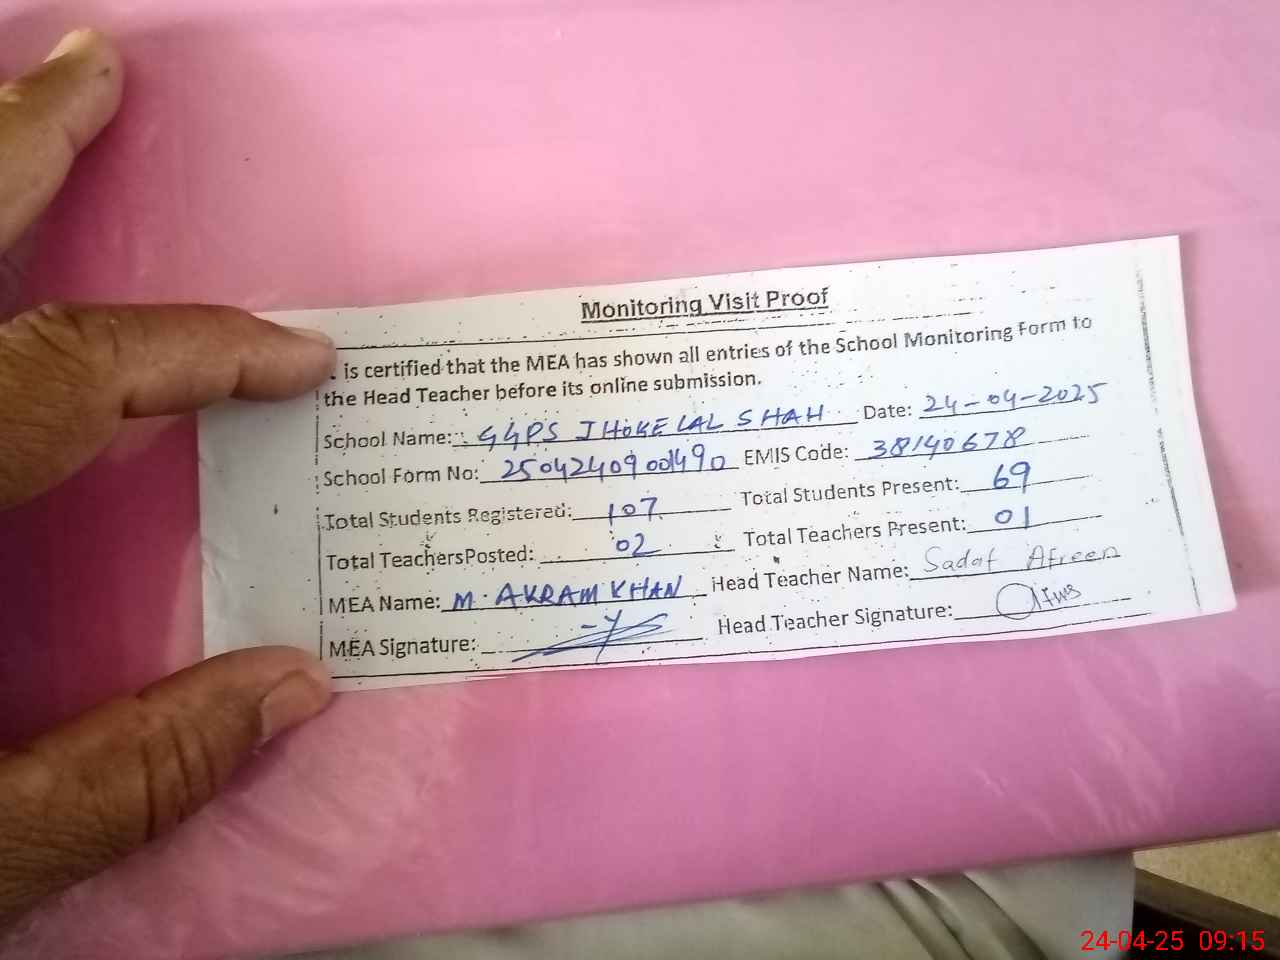 Monitoring Visit Proof
is certified that the MEA has shown all entries of the School Monitoring Form to
the Head Teacher before its online submission.
School Name: GGPS JHOKE LAL SHAH Date: 24-04-2025
School Form No: 25042409001490 EMIS Code: 38140678
Total Students Registered: 107 Total Students Present: 69
Total Teachers Posted: 02 Total Teachers Present: 01
MEA Name: M. AKRAM KHAN Head Teacher Name: Sadaf Afreen
MEA Signature: Head Teacher Signature:
24-04-25 09:15